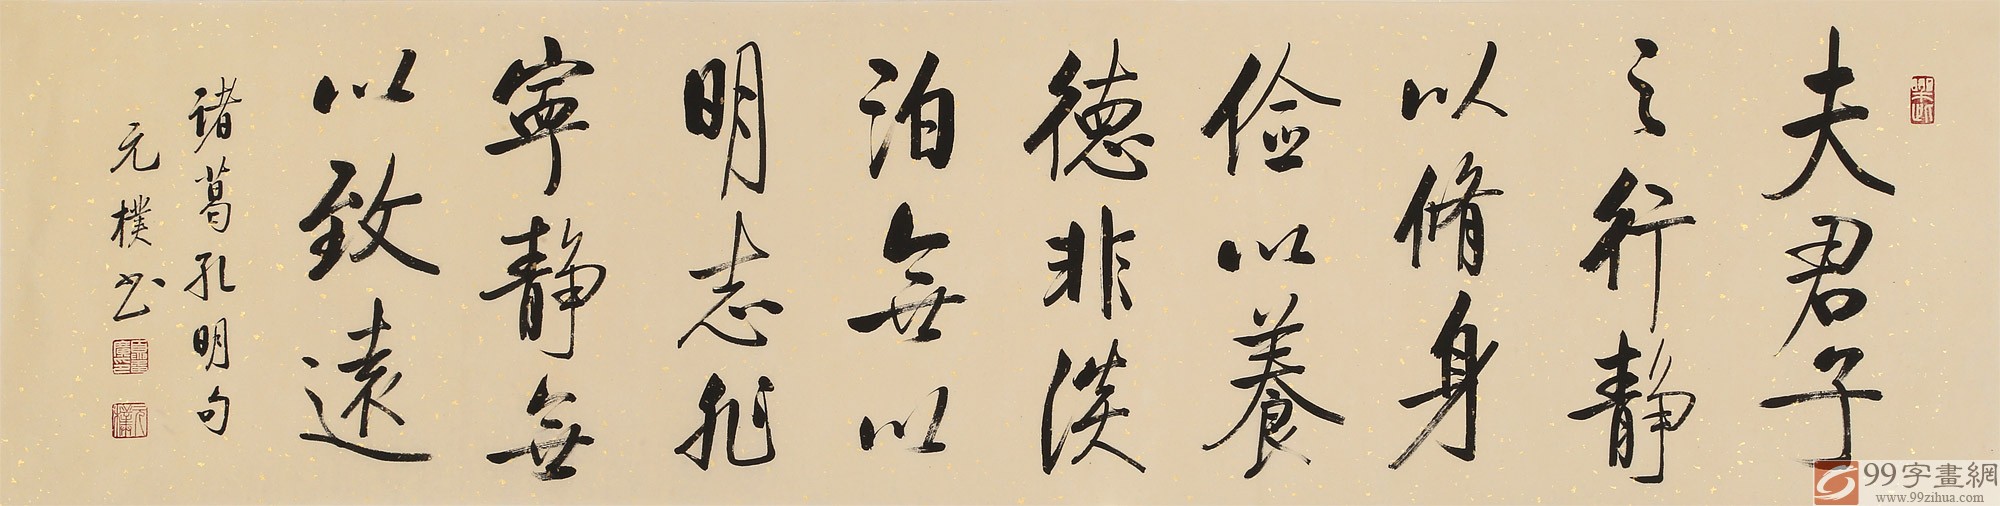 夫君子
之行静
以脩身
俭以養
德非淡
泊無以
明志非
寧静無
以致遠
诸葛孔明句
元樸书
99字畫網
www.99zihua.com